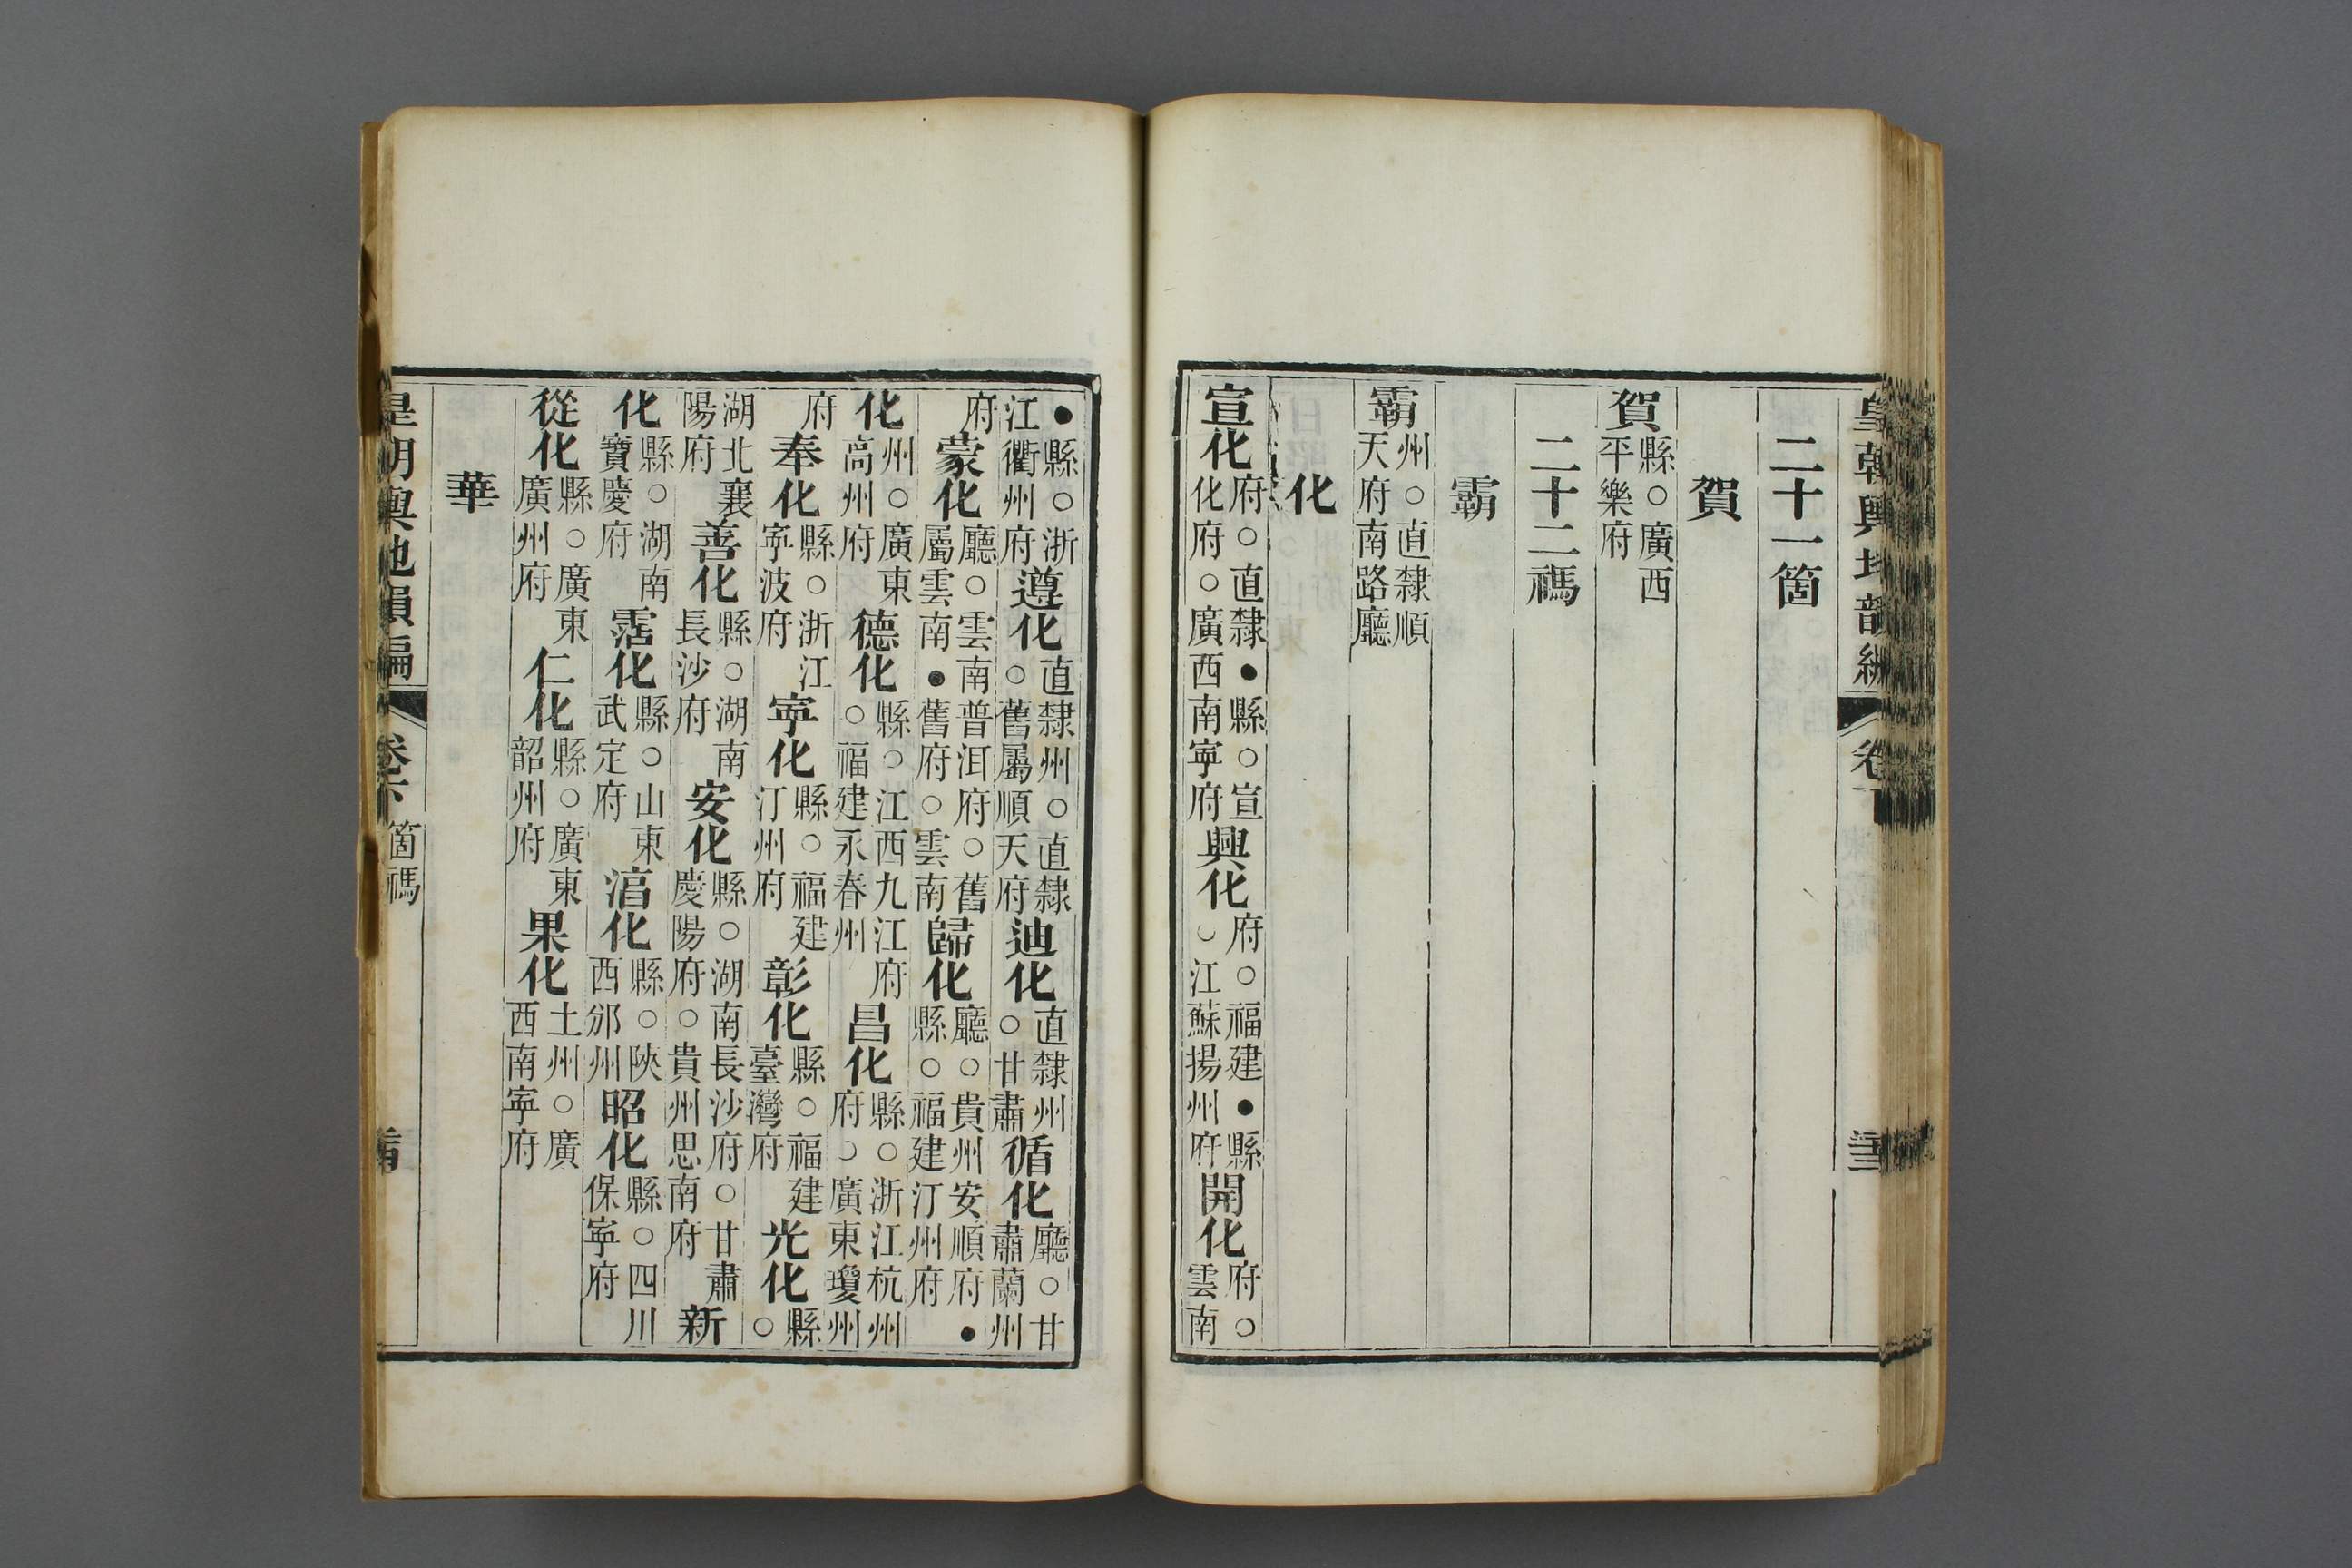 皇朝輿地韻編
二十一箇
賀
賀縣○廣西平樂府
二十二禡
霸
霸州○直隸順天府南路廳
化
宣化府○直隸●縣○宣化府○廣西南寧府興化府○福建●縣○江蘇揚州府開化府○雲南
●縣○浙江衢州府遵化直隸州○直隸○舊屬順天府迪化直隸州○甘肅循化廳○甘肅蘭州
府蒙化廳○雲南普洱府○舊屬雲南●舊府○雲南歸化廳○貴州安順府●縣○福建汀州府
化州○廣東高州府德化縣○江西九江府○福建永春州昌化縣○浙江杭州府○廣東瓊州
府奉化縣○浙江寧波府寧化縣○福建汀州府彰化縣○福建臺灣府光化縣○
湖北襄陽府善化縣○湖南長沙府安化縣○湖南長沙府○甘肅慶陽府○貴州思南府新
化縣○湖南寶慶府霑化縣○山東武定府湻化縣○陝西邠州昭化縣○四川保寧府
從化縣○廣東廣州府仁化縣○廣東韶州府果化土州○廣西南寧府
華
皇朝輿地韻編 卷下 箇禡